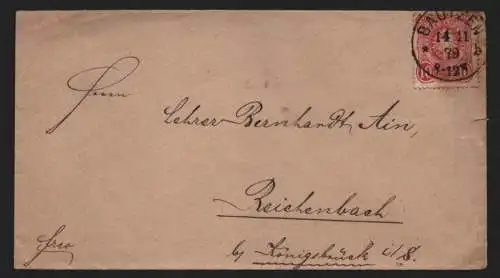 BAUTZEN
14 11
79
8-12V
* b
10
Herrn
Lehrer Bernhardt Ain,
Reichenbach
by Königsbrück i/S.
frco